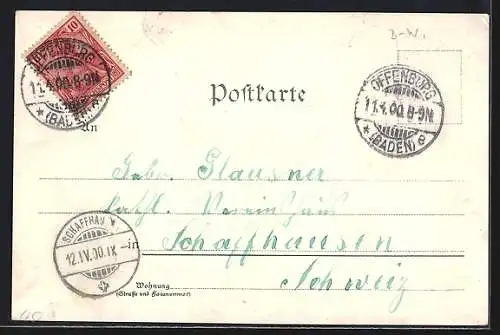 B-W.
10
OFFENBURG
11.4.00.8-9N
* (BADEN)
OFFENBURG
11.4.00.8-9N
* (BADEN) *
Postkarte
An
Glausner
Kathl. Vereinshaus
SCHAFFHAU
12.IV.00.IX
in Schaffhausen
Schweiz
Wohnung
(Straße und Hausnummer)